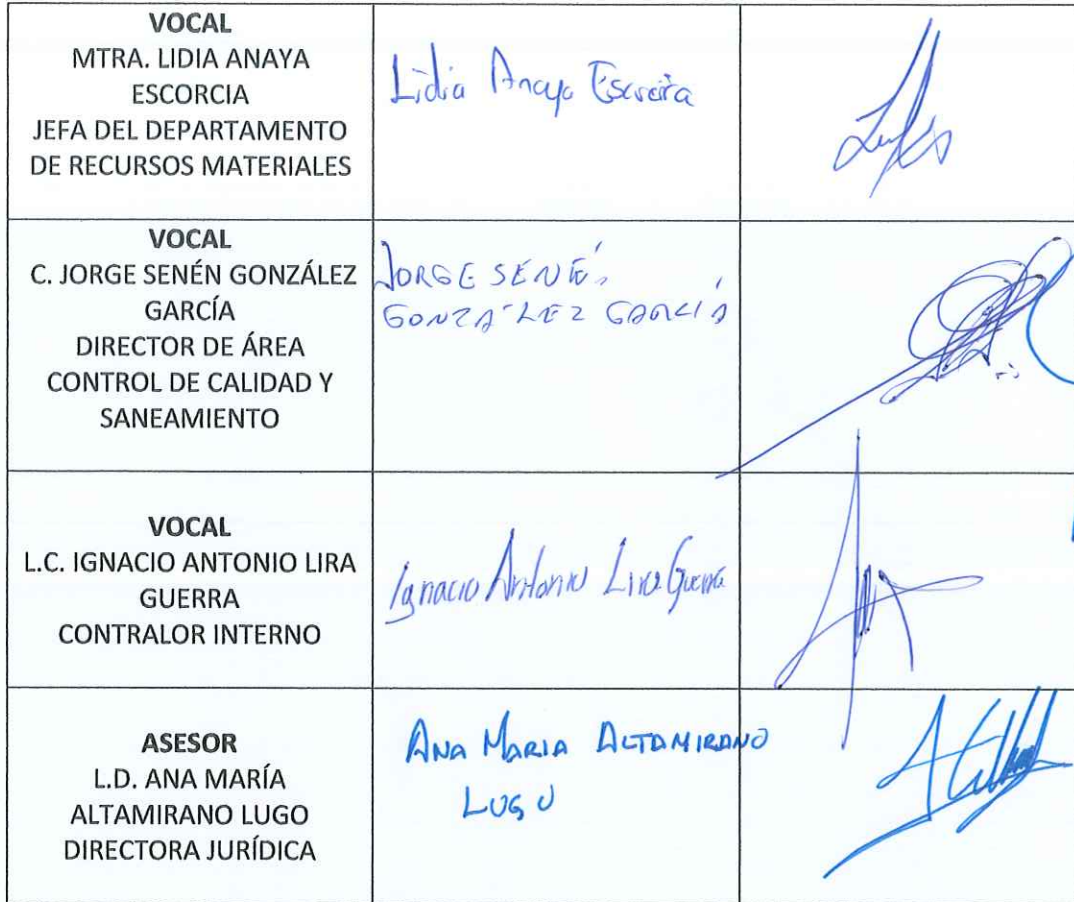 VOCAL
MTRA. LIDIA ANAYA
ESCORCIA
JEFA DEL DEPARTAMENTO
DE RECURSOS MATERIALES
Lidia Anaya Escorcia
VOCAL
C. JORGE SENÉN GONZÁLEZ
GARCÍA
DIRECTOR DE ÁREA
CONTROL DE CALIDAD Y
SANEAMIENTO
JORGE SENÉN
GONZÁLEZ GARCÍA
VOCAL
L.C. IGNACIO ANTONIO LIRA
GUERRA
CONTRALOR INTERNO
Ignacio Antonio Lira Guerra
ASESOR
L.D. ANA MARÍA
ALTAMIRANO LUGO
DIRECTORA JURÍDICA
ANA MARIA ALTAMIRANO
LUGO